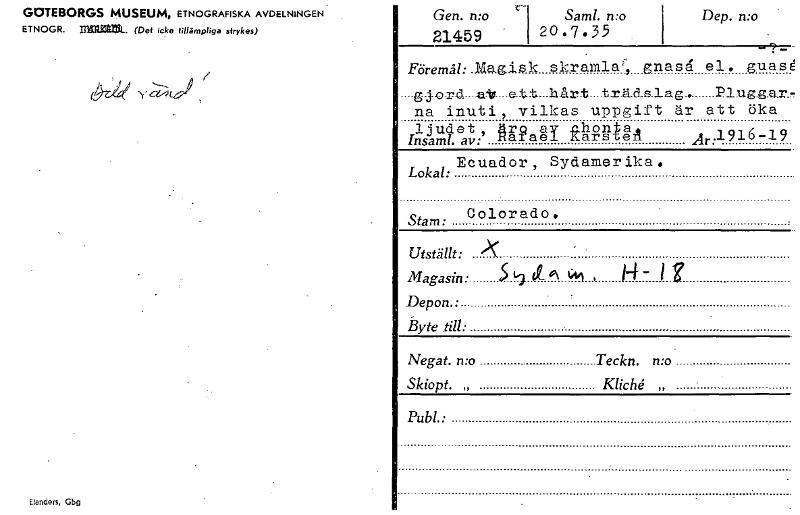 GÖTEBORGS MUSEUM, ETNOGRAFISKA AVDELNINGEN
ETNOGR. (Det icke tillämpliga strykes)
Bild vänd!
Elanders, Gbg
Gen. n:o Saml. n:o Dep. n:o
21459 20.7.35
-?-
Föremål: Magisk skramla, gnasá el. guasá
gjord av ett hårt trädslag. Pluggar-
na inuti, vilkas uppgift är att öka
ljudet, äro av chonta.
Insaml. av: Rafael Karsten År: 1916-19
Lokal: Ecuador, Sydamerika.
Stam: Colorado.
Utställt: X
Magasin: Sydam. H-18
Depon.:
Byte till:
Negat. n:o Teckn. n:o
Skiopt. „ Kliché „
Publ.: